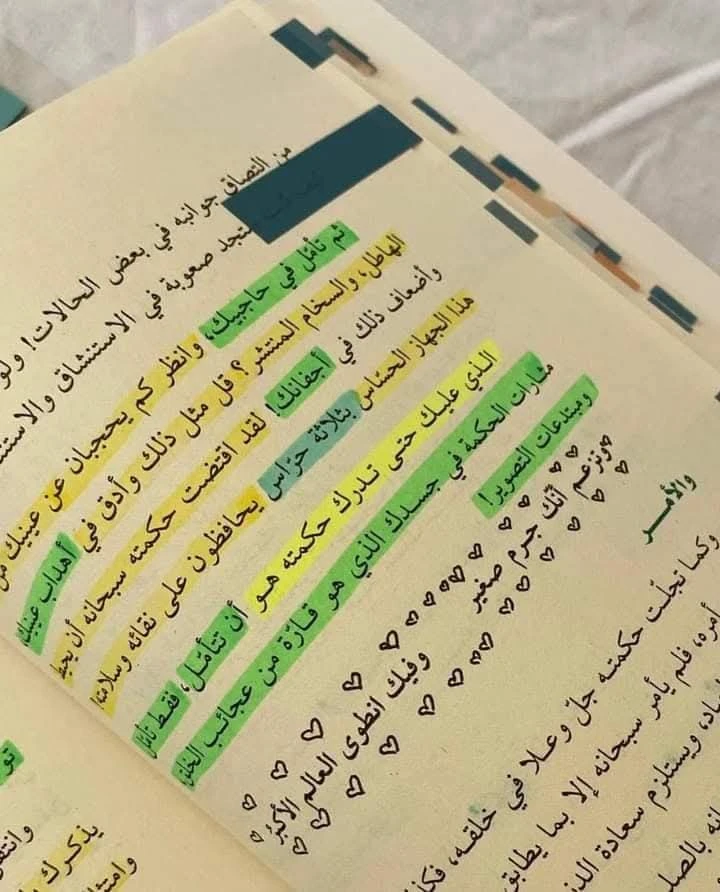 من التصاق جوانبه في بعض الحالات! ولو
ستجد صعوبة في الاستنشاق والاستنث
ثم تأمّل في حاجبيك، وانظر كم يحجبان عن عينيك من
الهاطل، والسخام المنتشر؟ قل مثل ذلك وأدق في أهداب عينيك،
وأضعاف ذلك في أجفانك! لقد اقتضت حكمته سبحانه أن يحيط
هذا الجهاز الحسّاس بثلاثة حرّاس يحافظون على نقائه وسلامته!
الذي عليك حتى تدرك حكمته هو أن تتأمّل، فقط تأمّل
منارات الحكمة في جسدك الذي هو قارّة من عجائب الخلق
ومبتدعات التصوير!
وتزعم أنّك جرم صغير
وفيك انطوى العالم الأكبر
والأمر
وكما تجلّت حكمته جلّ وعلا في خلقه، فكذ
أمره، فلم يأمر سبحانه إلا بما يطابق
ويستلزم سعادة الد
يذكرك